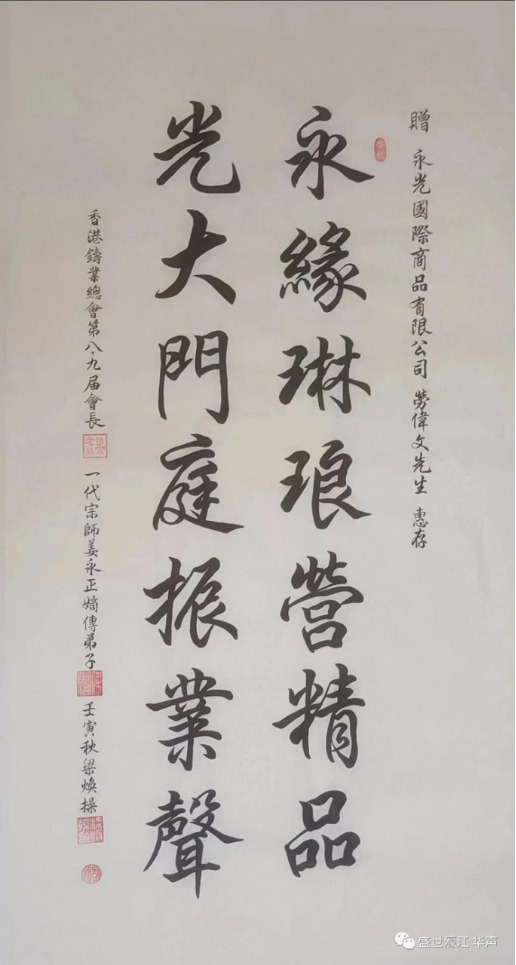 贈 永光國際商品有限公司 勞偉文先生 惠存
永緣琳琅營精品
光大門庭振業聲
香港鑄業總會第八九届會長
一代宗師姜永正嫡傳弟子
壬寅秋梁煥操
盛世濠江 华声